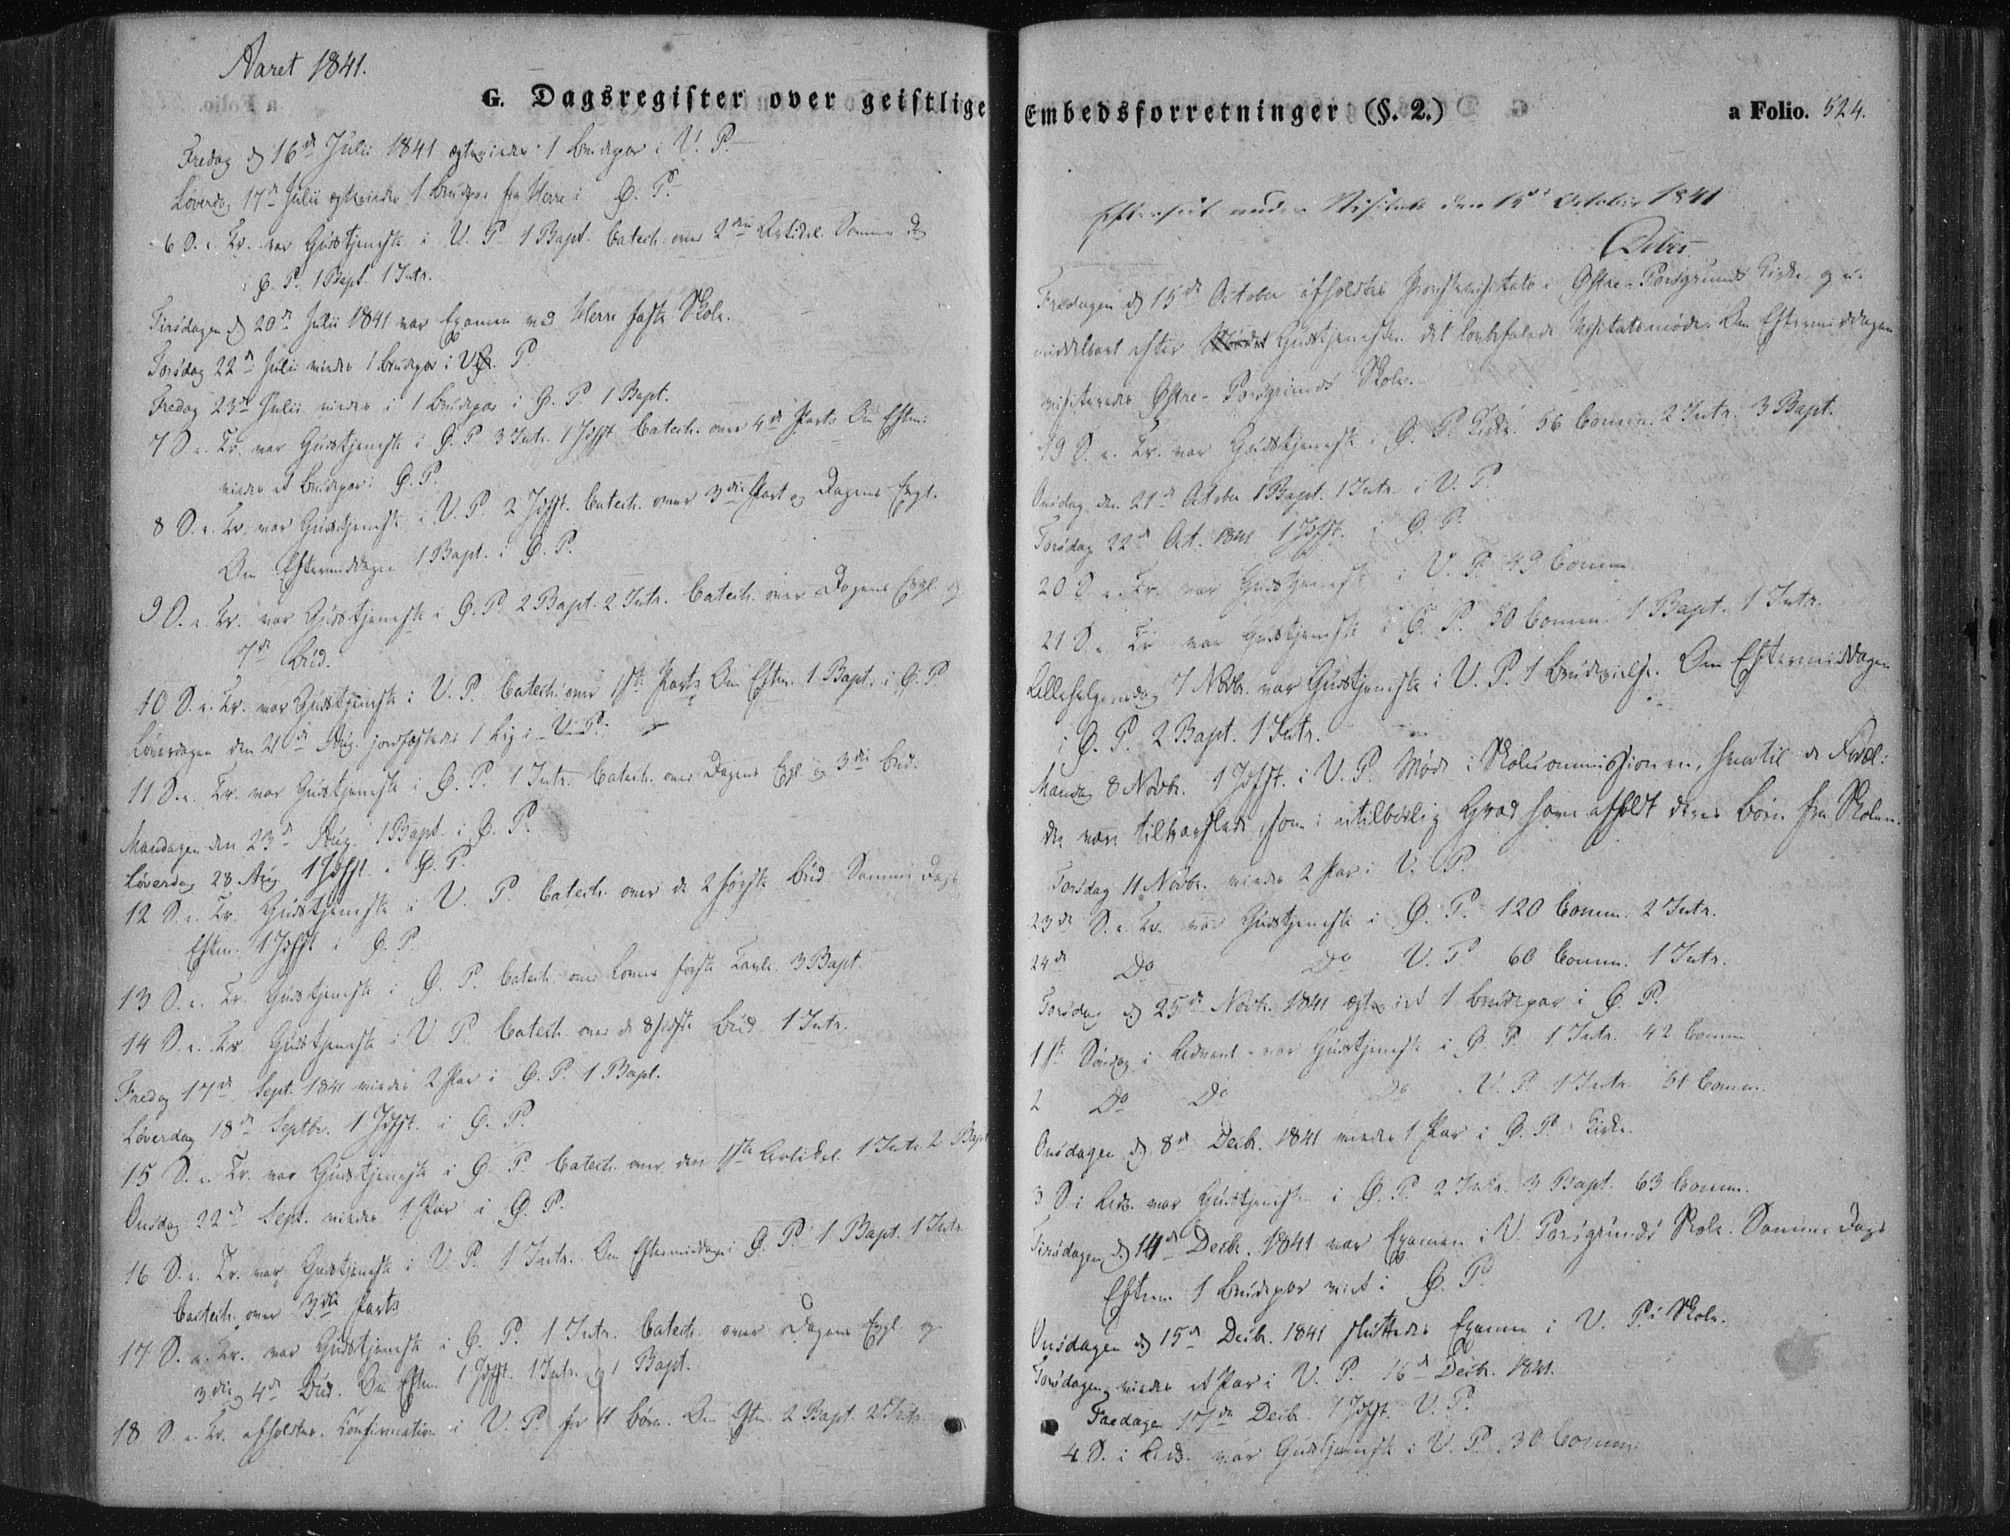 Aaret 1841.
G. Dagsregister over geistlige
Fredag d 16de Julii 1841 ægteviedes 1 Brudepar i V. P.
Løverdag 17de Julii ægteviedes 1 Brudepar fra Herre i Ø. P.
6 S. e. Tr. var Gudstjeneste i V. P. 1 Bapt. Catech. over 2den Artikel. Samme D
i Ø. P. 1 Bapt. 1 Intr.
Tirsdagen d 20de Julii 1841 var Examen ved Herre faste Skole.
Torsdag 22de Julii viedes 1 Brudepar i V. P.
Fredag 23de Julii viedes i 1 Brudepar i Ø. P. 1 Bapt.
7 S. e. Tr. var Gudstjeneste i Ø. P. 3 Intr. 1 Jdfst. Catech. over 4de Part. Om Efterm:
viedes et Brudepar i Ø. P.
8 S. e. Tr. var Gudstjeneste i V. P. 2 Jdfst. Catech. over 3die Part og Dagens Evgl.
Om Eftermiddagen 1 Bapt. i Ø. P.
9 S. e. Tr. var Gudstjeneste i Ø. P. 2 Bapt. 2 Intr. Catech. over Dagens Evgl. og
7de Bud.
10 S. e. Tr. var Gudstjeneste i V. P. Catech. over 1ste Part. Om Efterm. 1 Bapt. i Ø. P.
Løverdagen den 21de Aug. jordfæstedes 1 Lig i V. P.
11 S. e. Tr. var Gudstjeneste i Ø. P. 1 Intr. Catech. over Dagens Evgl. og 3die Bud.
Mandagen den 23de Aug. 1 Bapt. i Ø. P.
Løverdag 28 Aug. 1 Jdfst. i Ø. P.
12 S. e. Tr. Gudstjeneste i V. P. Catech. over de 2 første Bud. Samme Dags
Efterm. 1 Jdfst i Ø. P.
13 S. e. Tr. Gudstjeneste i Ø. P. Catech. over Lovens første Tavle. 3 Bapt.
14 S. e. Tr. Gudstjeneste i V. P. Catech. over de 8 sidste Bud. 1 Intr.
Fredag 17de Sept. 1841 viedes 2 Par i Ø. P. 1 Bapt.
Løverdag 18de Septbr. 1 Jdfst. i Ø. P.
15 S. e. Tr. var Gudstjeneste i Ø. P. Catech. over den 1ste Artikel. 1 Intr. 2 Bapt
Onsdag 22de Sept. viedes 1 Par i Ø. P.
16 S. e. Tr. var Gudstjeneste i V. P. 1 Intr. Om Eftermiddagen i Ø. P. 1 Bapt. 1 Intr.
Catech. over 3die Part.
17 S. e. Tr. var Gudstjeneste i Ø. P. 1 Intr. Catech. over Dagens Evgl. og
3die og 4de Bud. Om Efterm. 1 Jdfst. 1 Intr. og 1 Bapt.
18 S. e. Tr. afholdtes Confirmation i V. P. for 11 Børn. Om Efterm. 2 Bapt. 2 Intr.
Embedsforretninger (§. 2.)
a Folio. 524.
Efterseet under Visitats den 15de October 1841
Fredagen d 15de October afholdtes Provstevisitats i Østre-Porsgrunds Kirke, og u-
middelbart efter Gudstjenesten det lovbefalede Visitatsmøde. Om Eftermiddagen
visiteredes Østre-Porsgrunds Skole.
19 S. e. Tr. var Gudstjeneste i Ø. P. Kirke. 56 Comm. 2 Intr. 3 Bapt.
Onsdag den 21de October 1 Bapt. 1 Intr. i V. P.
Torsdag 22de Oct. 1841 1 Jdfst. i Ø. P.
20 S. e. Tr. var Gudstjeneste i V. P. 49 Comm.
21 S. e. Tr. var Gudstjeneste i Ø. P. 50 Comm. 1 Bapt. 1 Intr.
Allehelgensdag 7 Novbr. var Gudstjeneste i V. P. 1 Brudvielse. Om Eftermiddagen
i Ø. P. 2 Bapt. 1 Intr.
Mandag 8 Novbr. 1 Jdfst. i V. P. Møde i Skolecommissionen, hvortil de Foræl:
dre vare tilvarslede, som i utilbørlig Grad have afholdt deres Børn fra Skolen.
Torsdag 11 Novbr. viedes 2 Par i V. P.
23de S. e. Tr. var Gudstjeneste i Ø. P. 120 Comm. 2 Intr.
24de Do Do V. P. 60 Comm. 1 Intr.
Torsdag d 25de Novbr. 1841 ægteviet 1 Brudepar i Ø. P.
1ste Søndag i Advent var Gudstjeneste i Ø. P. 1 Intr. 42 Comm
2 Do Do Do V. P. 1 Intr. 51 Comm.
Onsdagen d 8de Decbr. 1841 viedes 1 Par i Ø. P. Kirke.
3 S. i Adv. var Gudstjeneste i Ø. P. 2 Intr. 3 Bapt. 63 Comm.
Tirsdagen d 14de Decbr. 1841 var Examen i V. Porsgrunds Skole. Samme Dags
Efterm. 1 Brudepar viet i Ø. P.
Onsdagen d 15de Decbr. 1841 sluttedes Examen i V. P.s Skole.
Torsdagen viedes et Par i V. P. 16de Decbr. 1841.
Fredagen 17de Decbr. 1 Jdfst. V. P.
4 S. i Adv. var Gudstjeneste i V. P. 30 Comm.